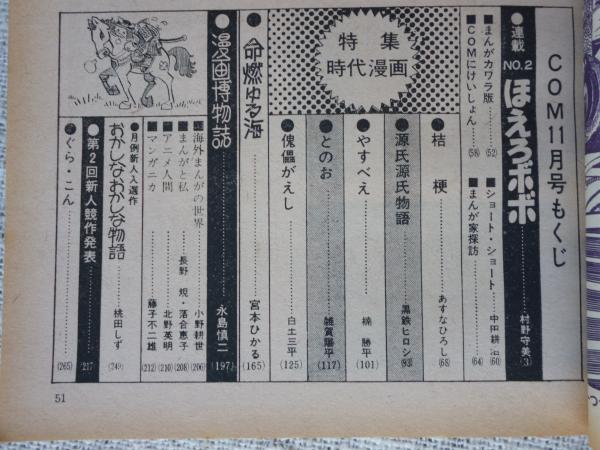 COM11月号もくじ
●連載 NO.2 ほえろボボ……村野守美(3)
■まんがカワラ版……(52)
■COMにけいしょん……(58)
■ショート・ショート……中田耕治(60)
■まんが家探訪……(64)
特集
時代漫画
桔梗……あすなひろし(68)
源氏源氏物語……黒鉄ヒロシ(93)
やすべえ……楠勝平(101)
とのお……雑賀陽平(117)
傀儡がえし……白土三平(125)
命燃ゆる海……宮本ひかる(165)
●漫画博物誌……永島慎二(197)
■海外まんがの世界……小野耕世(206)
■まんがと私……長野規・落合恵子(208)
■アニメ人間……北野英明(210)
■マンガニカ……藤子不二雄(212)
●月例新人入選作
おかしなおかしな物語……桃田しず(249)
●第2回新人競作発表……(217)
●ぐら・こん……(265)
51